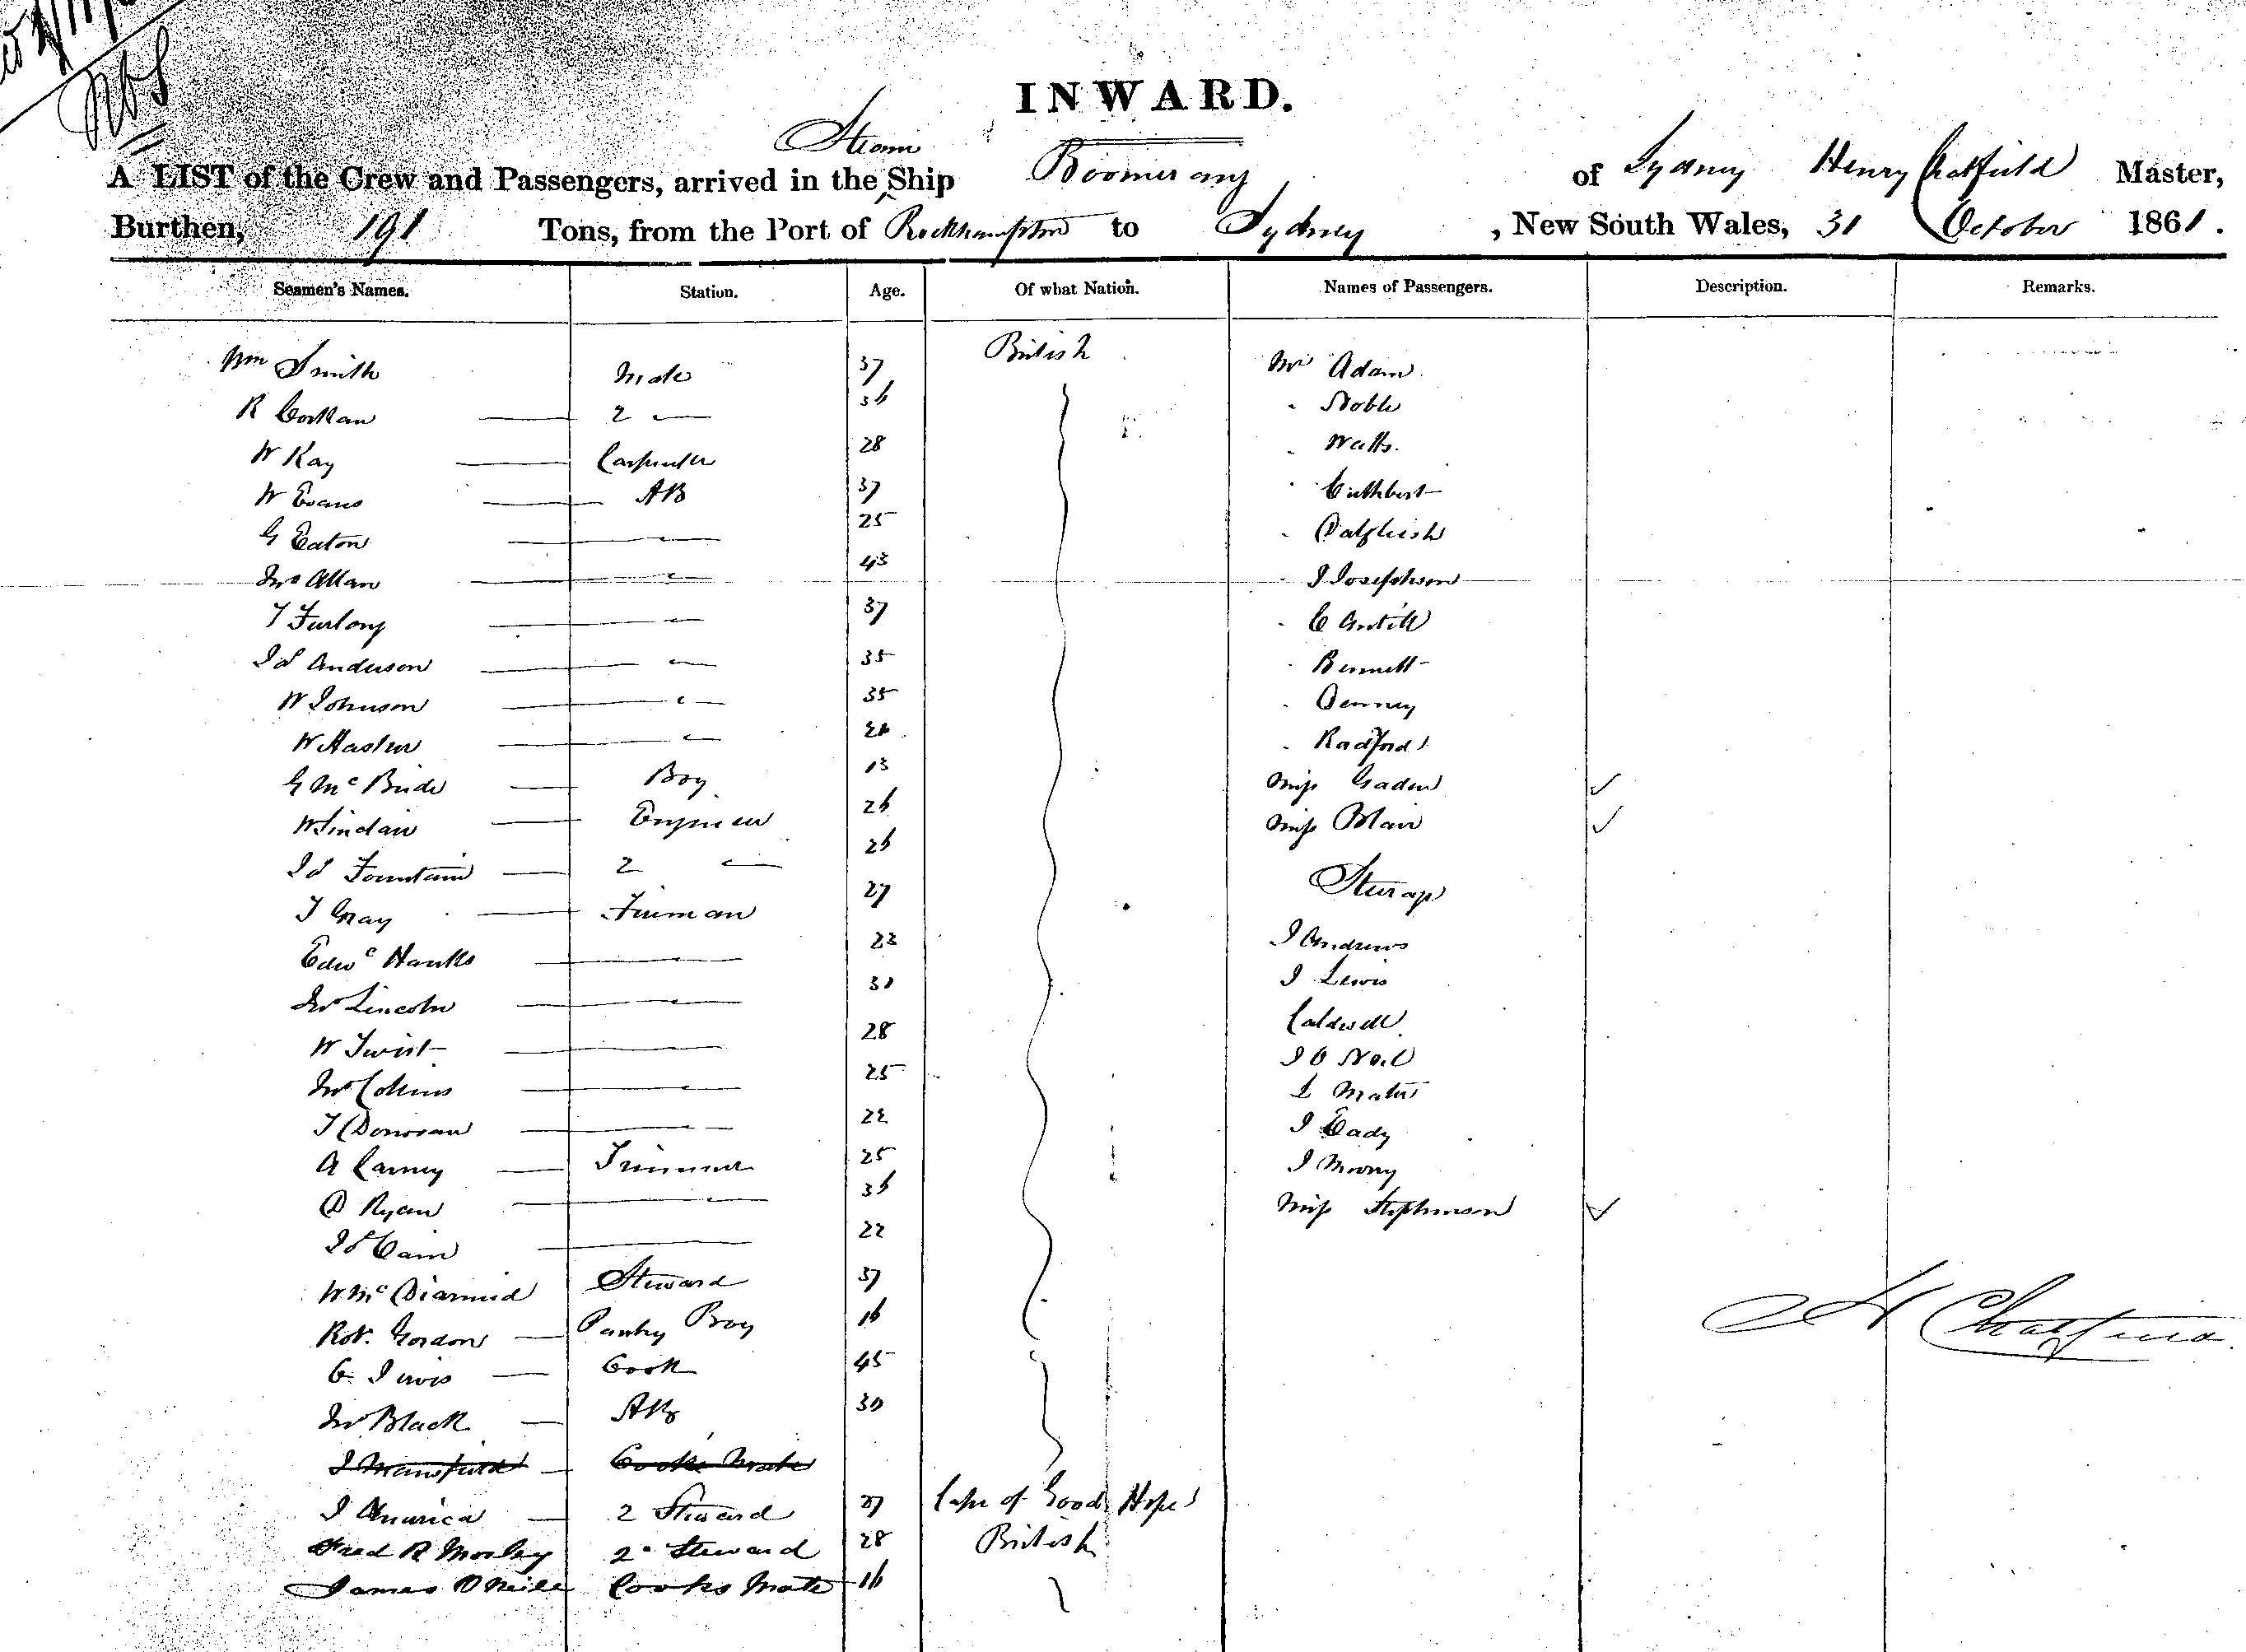 INWARD.
A LIST of the Crew and Passengers, arrived in the Steam Ship Boomerang of Sydney Henry Chatfield Master,
Burthen, 191 Tons, from the Port of Rockhampton to Sydney, New South Wales, 31 October 1861.
Seamen's Names. Station. Age. Of what Nation. Names of Passengers. Description. Remarks.
Wm Smith Mate 37 British Mr Adam
R Corkan 2 " 36 " Noble
W Kay Carpenter 28 " Watts
W Evans AB 37 " Cuthbert
G Eaton " 25 " Dalgleish
Jno Allan " 43 " J Josephson
T Furlong " 37 " C Antill
Js Anderson " 35 " Bennett
W Johnson " 35 " Denney
W Haslem " " Radford
G McBride Boy 13 Miss Gaden ✓
W Sinclair Engineer 26 Miss Blair ✓
Js Fountain 2 " 26 Steerage
T Gray Fireman 27
Edwd Hanks " 22 J Andrews
Jno Lincoln " 30 J Lewis
W Twist " 28 Caldwell
Jno Collins " 25 J O Neil
T Donovan " 22 L Mater
A Carney Trimmer 25 J Eady
D Ryan " 36 J Moony
Js Cain 22 Miss Stephenson ✓
W McDiarmid Steward 37
Robt. Gordon Pantry Boy 16 H Chatfield
C Jervis Cook 45
Jno Black AB 30
J Mansfield Cooks Mate
J America 2 Steward 27 Cape of Good Hope
Fred R Morley 2d Steward 28 British
James O Neill Cooks Mate 16